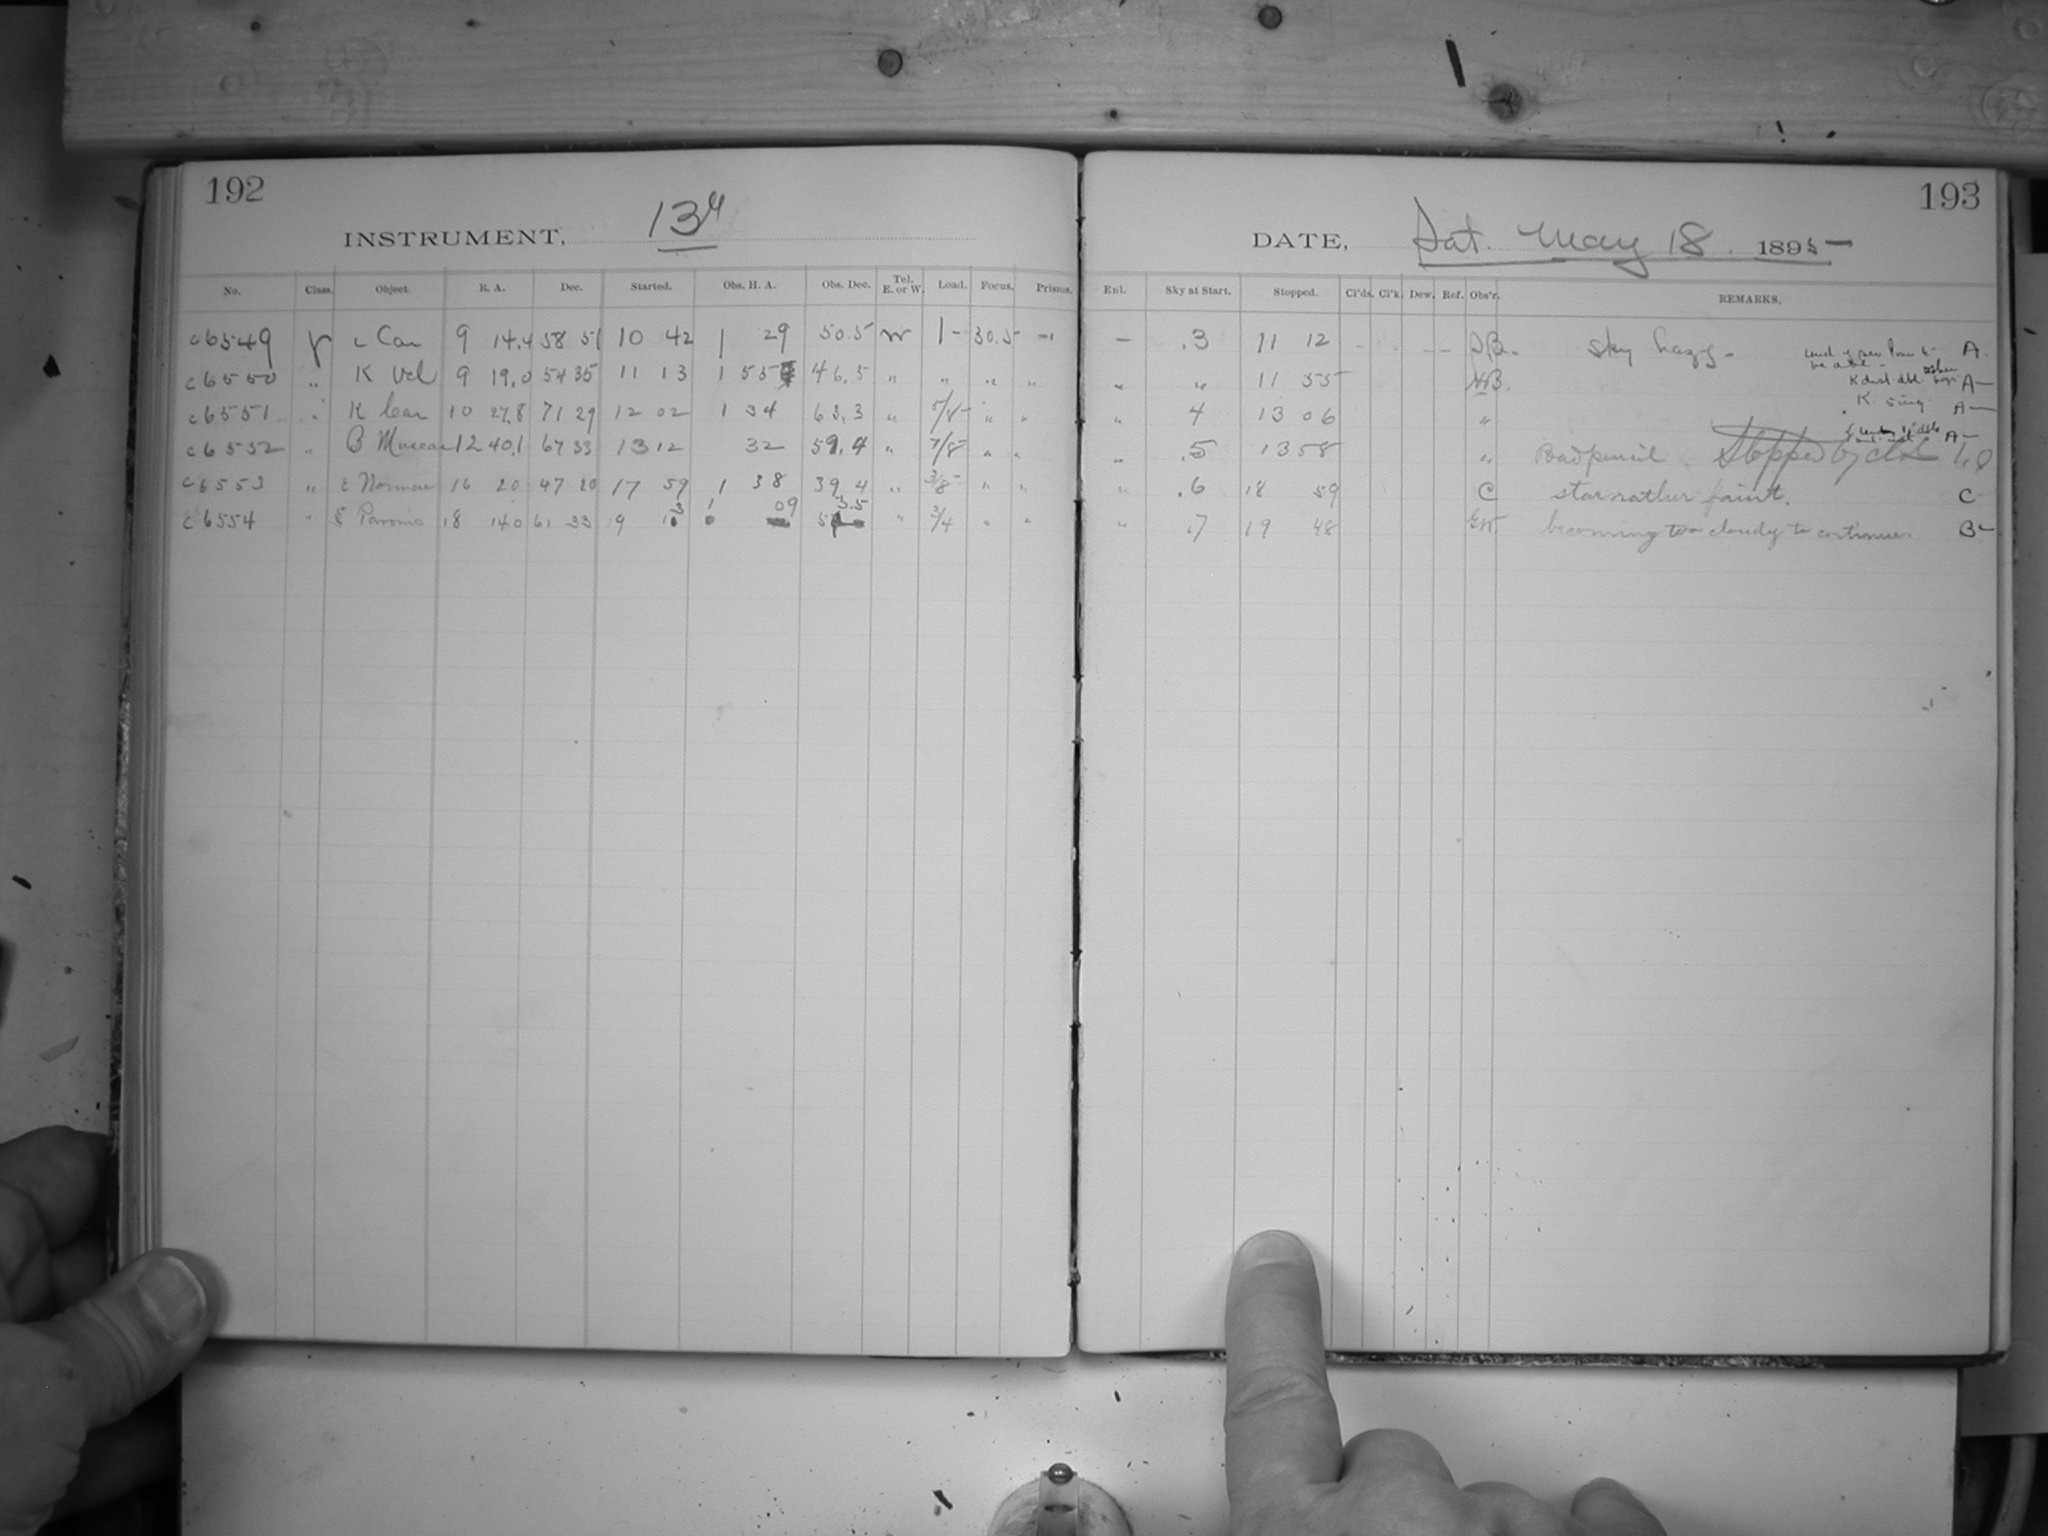 192
INSTRUMENT, 13"
No. Class. Object. R. A. Dec. Started. Obs. H. A. Obs. Dec. Tel. E. or W. Load. Focus. Prisms.
c6549 ι Car 9 14.4 58 51 10 42 1 29 50.5 W 1- 30.5 -
c6550 " K Vel 9 19.0 54 35 11 13 1 55 46.5 " " " "
c6551 " K Car 10 27.8 71 29 12 02 1 34 63.3 " 5/8- " "
c6552 " B Muscae 12 40.1 67 33 13 12 32 59.4 " 7/8- " "
c6553 " ε Normae 16 20 47 20 17 59 1 38 39.4 " 3/8- " "
c6554 " ξ Pavonis 18 14.0 61 33 19 13 1 09 3.5 " 3/4 " "
193
DATE, Sat. May 18. 1895
Enl. Sky at Start. Stopped. Cl'ds. Cl'k. Dew. Ref. Obs'r. REMARKS.
- .3 11 12 Sky hazy- A.
" " 11 55 A-
" 4 13 06 " K sing A-
" .5 13 58 " Bad pencil. Stopped by A-
" .6 18 59 C star rather faint. C
" .7 19 48 becoming too cloudy to continue. B-